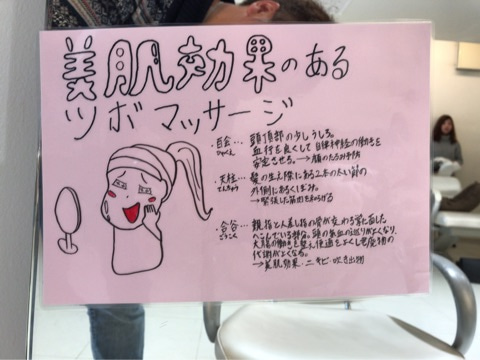 美肌効果のある
ツボマッサージ
・百会… 頭頂部の少しうしろ。
ひゃくえ 血行を良くして自律神経の働きを
安定させる。→顔のたるみ予防
・天柱… 髪の生え際にある2本の太い筋の
てんちゅう 外側にあるくぼみ。
→緊張した筋肉をやわらげる
・合谷… 親指と人差し指の骨が交わる手前の
ごうこく へこんでいる部分。頭の気血の巡りがよくなり、
大腸の働きを整え便通をよくし老廃物の
代謝がよくなる。
→美肌効果・ニキビ・吹き出物